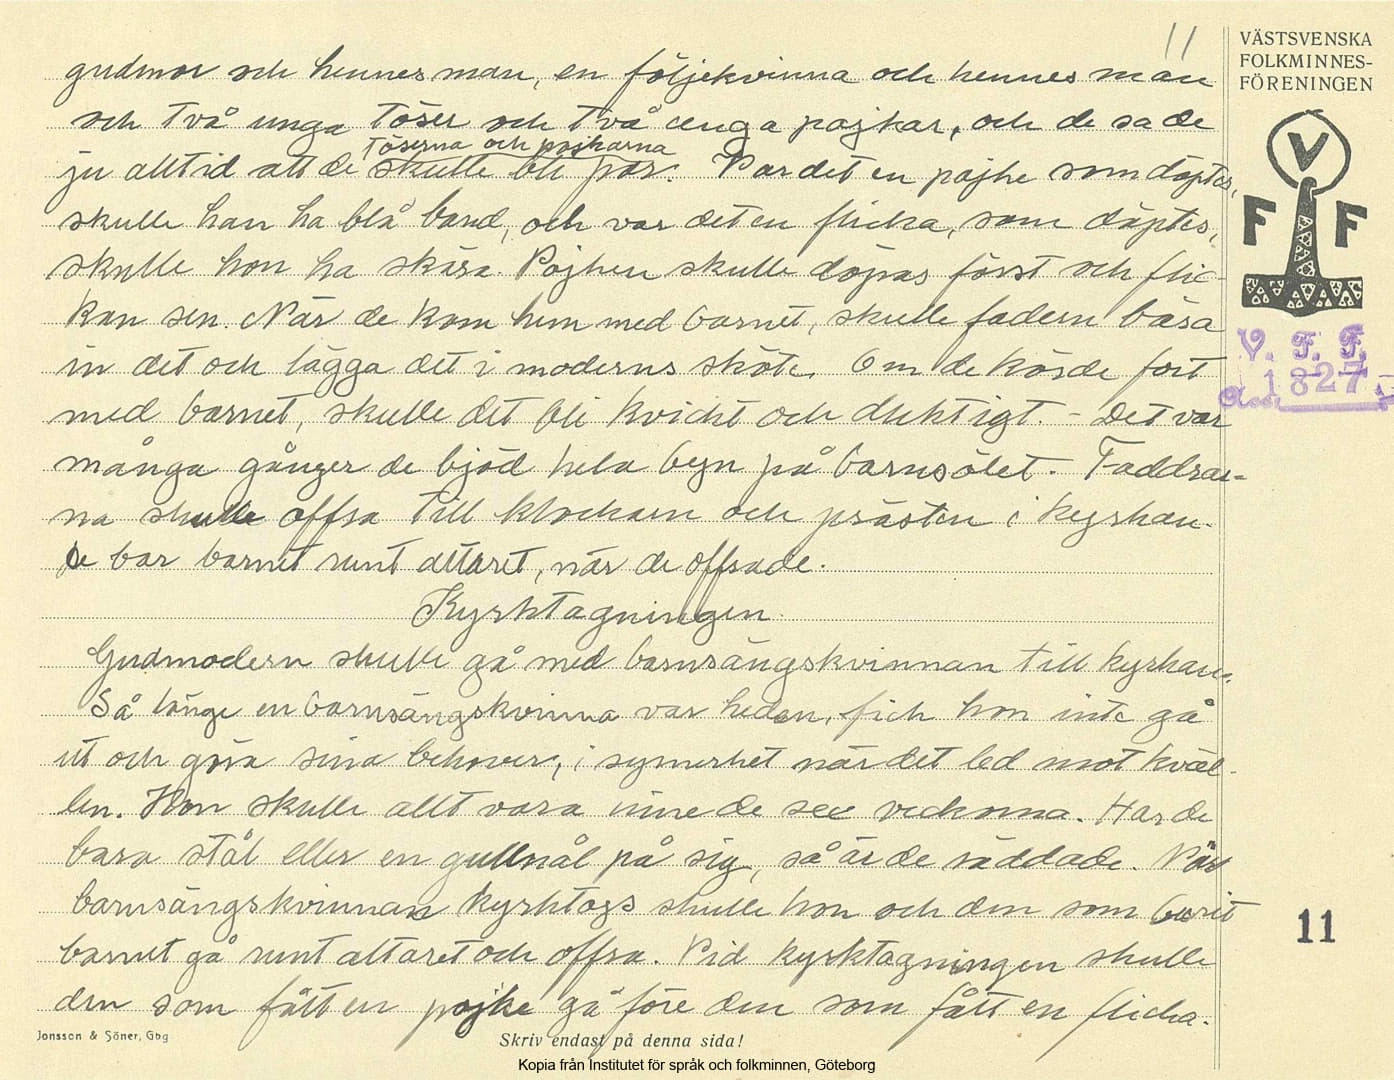 11
VÄSTSVENSKA
FOLKMINNES-
FÖRENINGEN
V
F F
V. F. F.
1827
gudmor och hennes man, en följekvinna och hennes man
och två unga töser och två unga pojkar, och de sade
töserna och pojkarna
ju alltid att de skulle bli par. Var det en pojke som döptes,
skulle han ha blå band, och var det en flicka, som döptes,
skulle hon ha skära. Pojken skulle döpas först och flic-
kan sen. När de kom hem med barnet, skulle fadern bära
in det och lägga det i moderns sköte. Om de körde fort
med barnet, skulle det bli kvickt och duktigt. - Det var
många gånger de bjöd hela byn på barnsölet. Faddrar-
na skulle offra till klockarn och prästen i kyrkan.
De bar barnet runt altaret, när de offrade.
Kyrktagningen.
Gudmodern skulle gå med barnsängskvinnan till kyrkan.
Så länge en barnsängskvinna var heden, fick hon inte gå
ut och göra sina behover, i synnerhet när det led mot kväl-
len. Hon skulle allt vara inne de sex veckorna. Har de
bara stål eller en gullnål på sig, så är de räddade. När
barnsängskvinnan kyrktogs skulle hon och den som burit
barnet gå runt altaret och offra. Vid kyrktagningen skulle
den som fått en pojke gå före den som fått en flicka.
11
Jonsson & Söner, Gbg
Skriv endast på denna sida!
Kopia från Institutet för språk och folkminnen, Göteborg